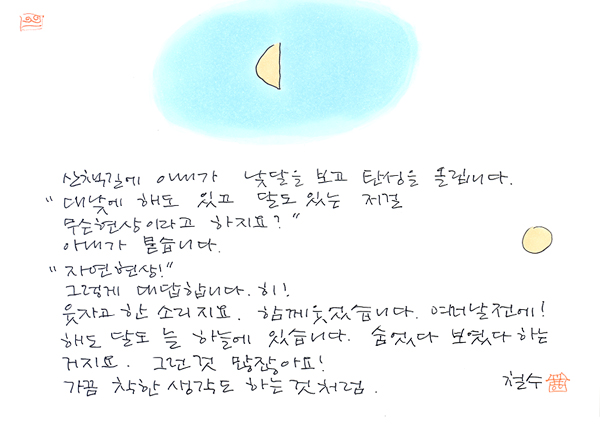 산책길에 아내가 낮달을 보고 탄성을 올립니다.
"대낮에 해도 있고 달도 있는 저걸
무슨현상이라고 하지요?"
아내가 묻습니다.
"자연현상!"
그렇게 대답합니다. 히!
웃자고 한 소리지요. 함께웃었습니다. 여러날전에!
해도 달도 늘 하늘에 있습니다. 숨었다 보였다 하는
거지요. 그런것 많잖아요!
가끔 착한 생각도 하는것처럼.
철수